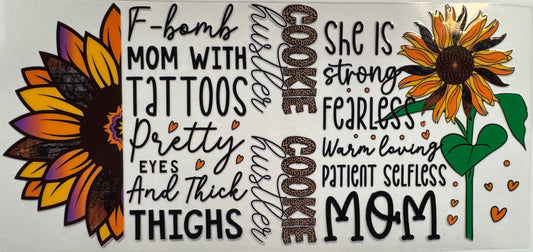 F-bomb
MOM WITH
TATTOOS
Pretty
EYES
And Thick
THIGHS
COOKIE
hustler
COOKIE
hustler
She is
strong
fearless
Warm loving
patient selfless
MOM